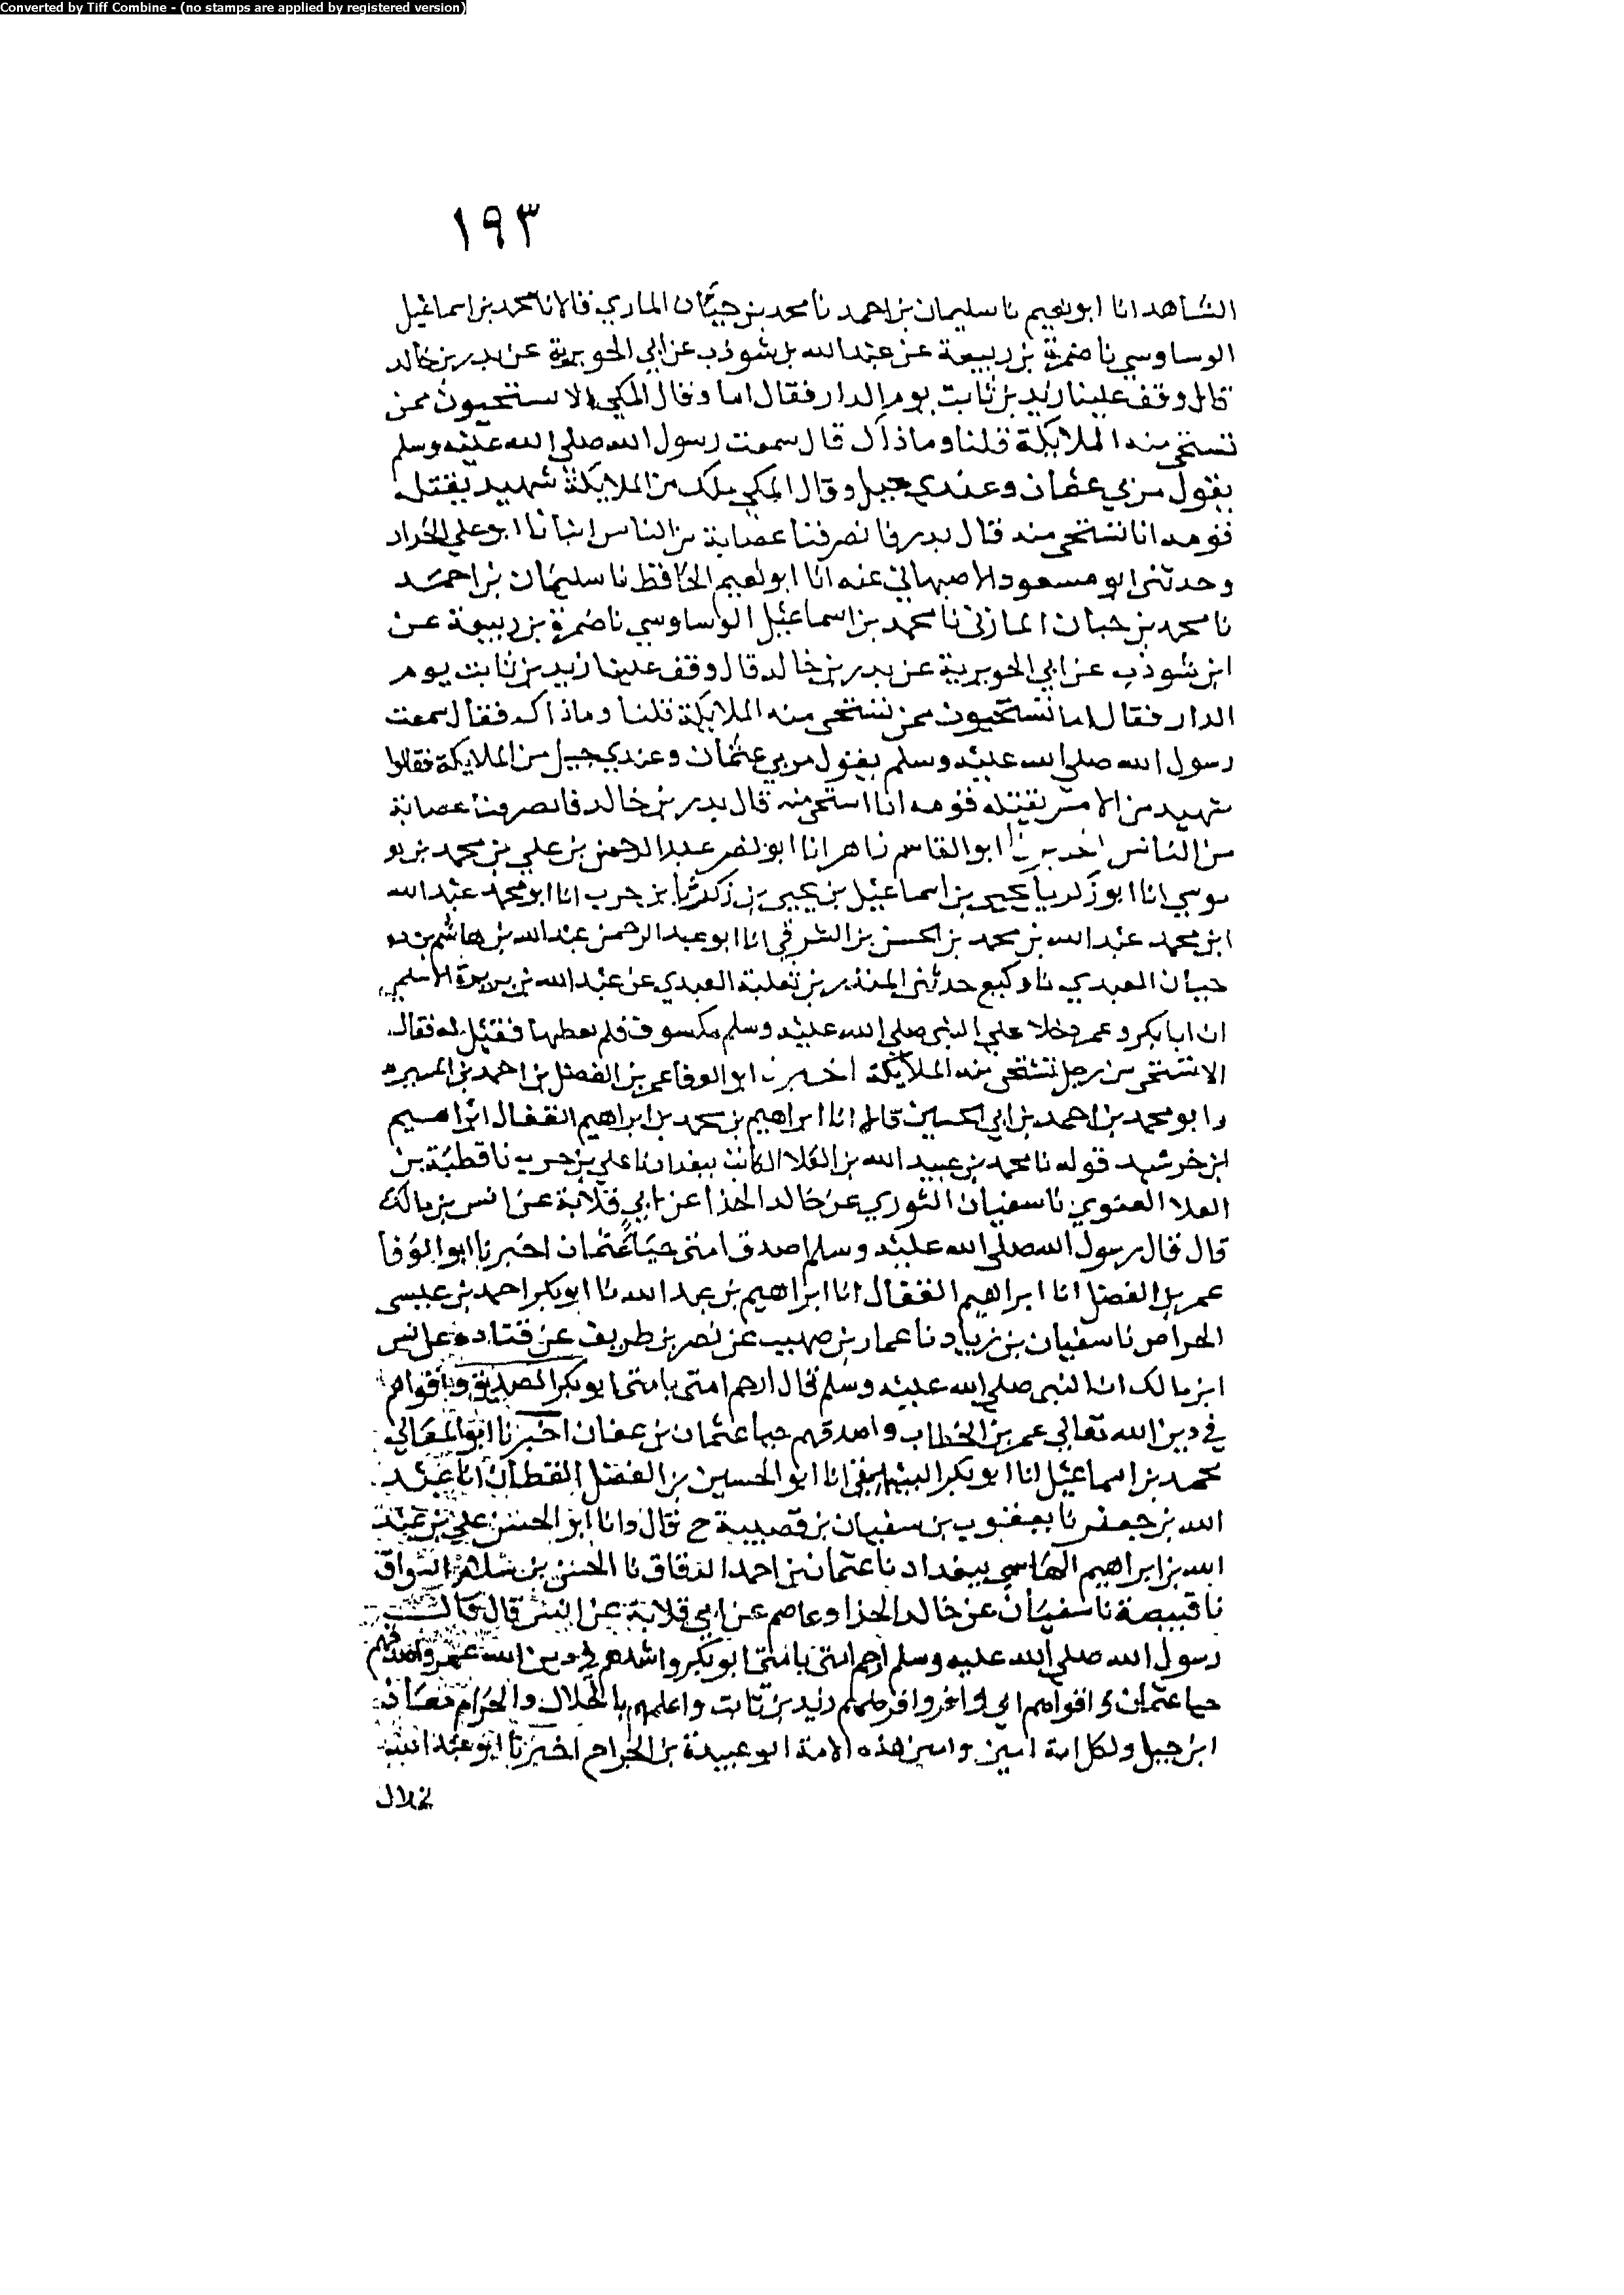 Converted by Tiff Combine - (no stamps are applied by registered version)
١٩٣
الشاهد انا ابو نعيم نا سليمان بن احمد نا محمد بن حيان المازي قالا نا محمد بن اسماعيل
الوساوسي نا ضمرة بن ربيعة عن عبد الله بن شوذب عن ابي الحويرية عن بدر بن خالد
قال وقف علينا زيد بن ثابت يوم الدار فقال اما وقال المكي الا تستحيون ممن
تستحي منه الملايكة قلنا وما ذاك قال سمعت رسول الله صلى الله عليه وسلم
يقول مر بي عثمان وعندي جبل وقال المكي ملك من الملايكة شهيد يقتله
قومه انا نستحي منه قال بدر فانصرفنا عصابة من الناس انبانا ابو علي الحداد
وحدثني ابو مسعود الاصبهاني عنه انا ابو نعيم الحافظ نا سليمان بن احمد
نا محمد بن حبان المازني نا محمد بن اسماعيل الوساوسي نا ضمرة بن ربيعة عن
ابن شوذب عن ابي الحويرية عن بدر بن خالد قال وقف علينا زيد بن ثابت يوم
الدار فقال اما تستحيون ممن تستحي منه الملايكة قلنا وما ذاك فقال سمعت
رسول الله صلى الله عليه وسلم يقول مر بي عثمان وعندي جبل من الملايكة فقالوا
شهيد من الاميين يقتله قومه انا استحي منه قال بدر بن خالد فانصرفنا عصابة
من الناس اخبرنا ابو القاسم زاهر انا ابو نصر عبد الرحمن بن علي بن محمد بن
موسي انا ابو زكريا يحيى بن اسماعيل بن يحيى بن زكريا بن حرب انا ابو محمد عبد الله
ابن محمد عبد الله بن محمد بن الحسن بن الشرقي انا ابو عبد الرحمن عبد الله بن هاشم بن
حيان العبدي نا وكيع حدثني المنذر بن ثعلبة العبدي عن عبد الله بن بريدة الاسلمي
ان ابا بكر وعمر دخلا علي النبي صلى الله عليه وسلم مكسوف فلم يعطها فقيل له فقال
الا تستحي من رجل تستحي منه الملايكة اخبرنا ابو الوفا عمر بن الفضل بن احمد بن المميز
وابو محمد بن احمد بن ابي الحسين قالا انا ابراهيم بن محمد بن ابراهيم القفال ابراهيم
ابن خرشيد قوله نا محمد بن عبيد الله بن العلا الكاتب ببغداد نا علي بن حرب نا قطبة بن
العلا الغنوي نا سفيان الثوري عن خالد الحذا عن ابي قلابة عن انس بن مالك
قال قال رسول الله صلى الله عليه وسلم اصدق امتي حيا عثمان اخبرنا ابو الوفا
عمر بن الفضل انا ابراهيم القفال انا ابراهيم بن عبد الله نا ابو بكر احمد بن عيسى
الخواص نا سفيان بن زياد نا عمار بن صهيب عن نصر بن طريف عن قتادة عن انس
ابن مالك ان النبي صلى الله عليه وسلم قال ارحم امتي بامتي ابو بكر الصديق واقواهم
في دين الله تعالى عمر بن الخطاب واصدقهم حيا عثمان بن عفان اخبرنا ابو المعالي
محمد بن اسماعيل انا ابو بكر البيهقي انا ابو الحسين بن الفضل القطان انا عبد
الله بن جعفر نا يعقوب بن سفيان بن قصيبة ح قال وانا ابو الحسن علي بن عبد
الله بن ابراهيم الهاشمي ببغداد نا عثمان بن احمد الدقاق نا الحسن بن سلام السواق
نا قبيصة نا سفيان عن خالد الحذا وعاصم عن ابي قلابة عن انس قال قال
رسول الله صلى الله عليه وسلم ارحم امتي بامتي ابو بكر واشدهم في دين الله عمر واصدقهم
حيا عثمان واقواهم ابي وافرضهم زيد بن ثابت واعلمهم بالحلال والحرام معاذ
ابن جبل ولكل امة امين وامين هذه الامة ابو عبيدة بن الجراح اخبرنا ابو عبد الله